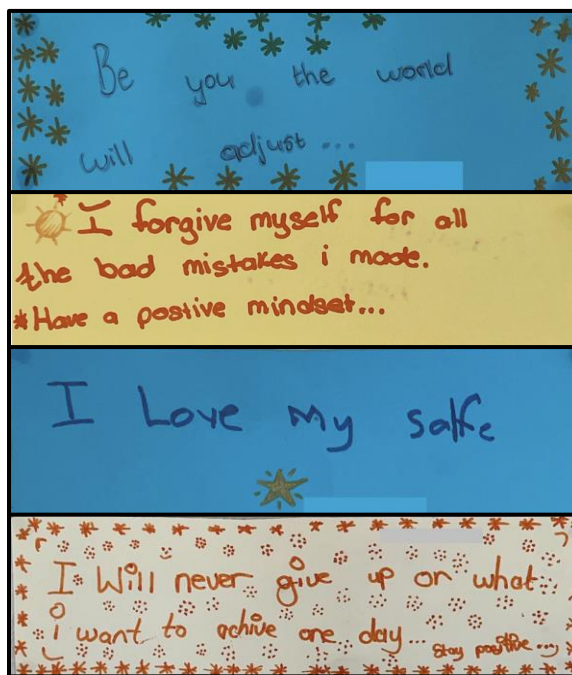 Be you the world
will adjust...
I forgive myself for all
the bad mistakes i made.
*Have a postive mindset...
I Love My salfe
I Will never give up on what
i want to achive one day...
Stay positive...